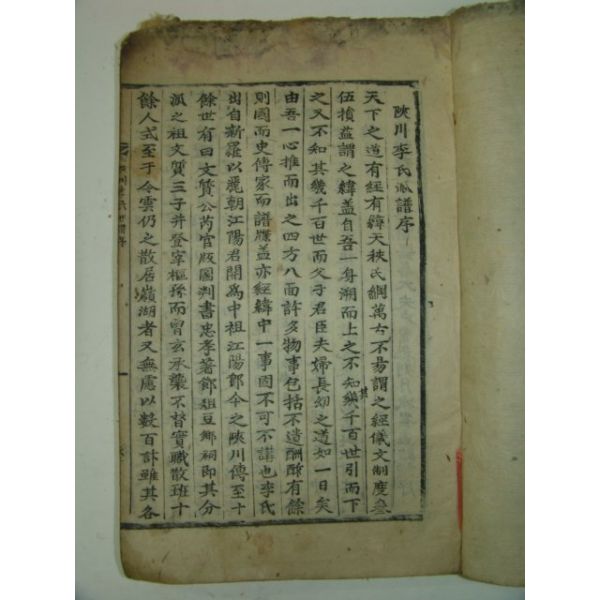 陜川李氏派譜序
天下之道有經有緯天秩民綱萬古不易謂之經儀文制度叅
伍損益謂之緯盖自吾一身溯而上之不知其幾千百世引而下
之又不知其幾千百世而父子君臣夫婦長幼之道如一日矣
由吾一心推而出之四方八面許多物事包括不遺酬酢有餘
則國而史傳家而譜牒盖亦經緯中一事固不可不講也李氏
出自新羅以麗朝江陽君開爲中祖江陽郎今之陜川傳至十
餘世有曰文質公芮官版圖判書忠孝著節俎豆鄉祠即其分
派之祖文質三子并登宰樞孫而曾玄承襲不替實職散班十
餘人式至于今雲仍之散居嶺湖者又無慮以數百計雖其各